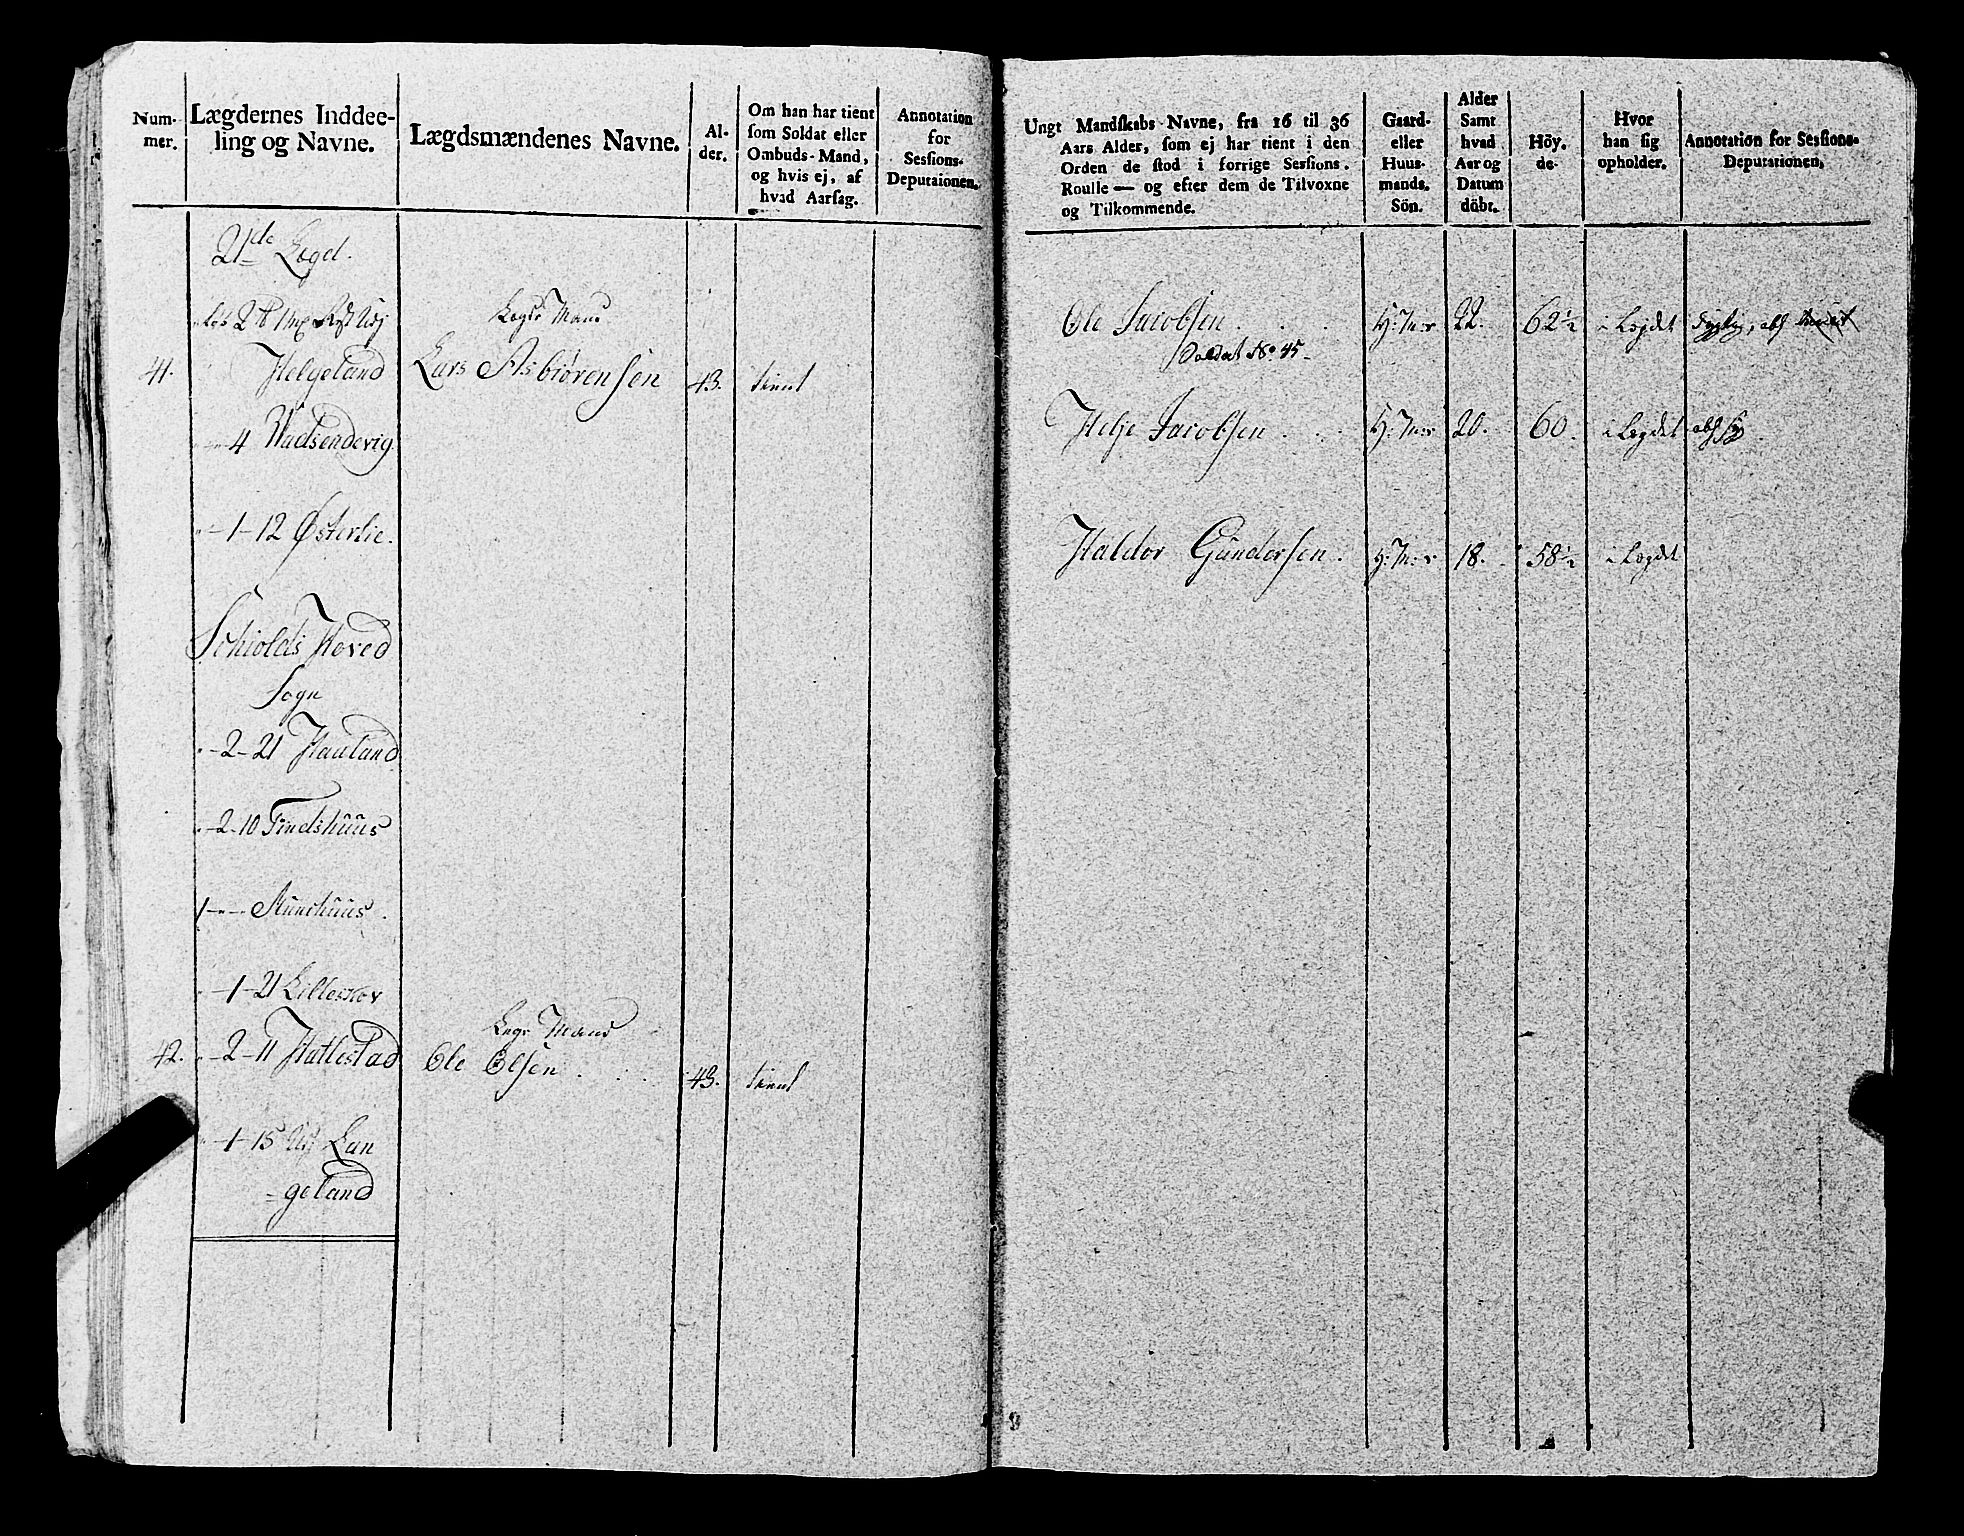 Num-
mer.
Lægdernes Inddee-
ling og Navne.
Lægdsmændenes Navne.
Al-
der.
Om han har tient
som Soldat eller
Ombuds-Mand,
og hvis ej, af
hvad Aarsag.
Annotation
for
Sessions-
Deputaionen.
21de Lægd.
Løb 2 
Lægds Mand
41. Helgeland Lars Asbiørensen 43. tient
4 Vadsendevig
-1-12 Østerlie.
Schiolds Hoved
Sogn
-2-21 Hauland
-2-10 Findshuus
1-"- Kunshuus.
-1-21 Lilleskov
Lægs Mand
42. -2-11 Hatlestad Ole Olsen . . . 43. tient
-1-15 Lan
-geland
Ungt Mandskabs Navne, fra 16 til 36
Aars Alder, som ej har tient i den
Orden de stod i forrige Sessions-
Roulle — og efter dem de Tilvoxne
og Tilkommende.
Gaard-
eller
Huus-
mands-
Sön.
Alder
Samt
hvad
Aar og
Datum
döbt.
Höy-
de.
Hvor
han sig
opholder.
Annotation for Sessions-
Deputationen.
Ole Jacobsen . . . H:M:s 22. 62½ i Lægdet
Soldat No. 45
Helje Jacobsen . . . H:M:s 20. 60. i Lægdet
Haldor Gundersen . H:M:s 18. 58½ i Lægdet
9